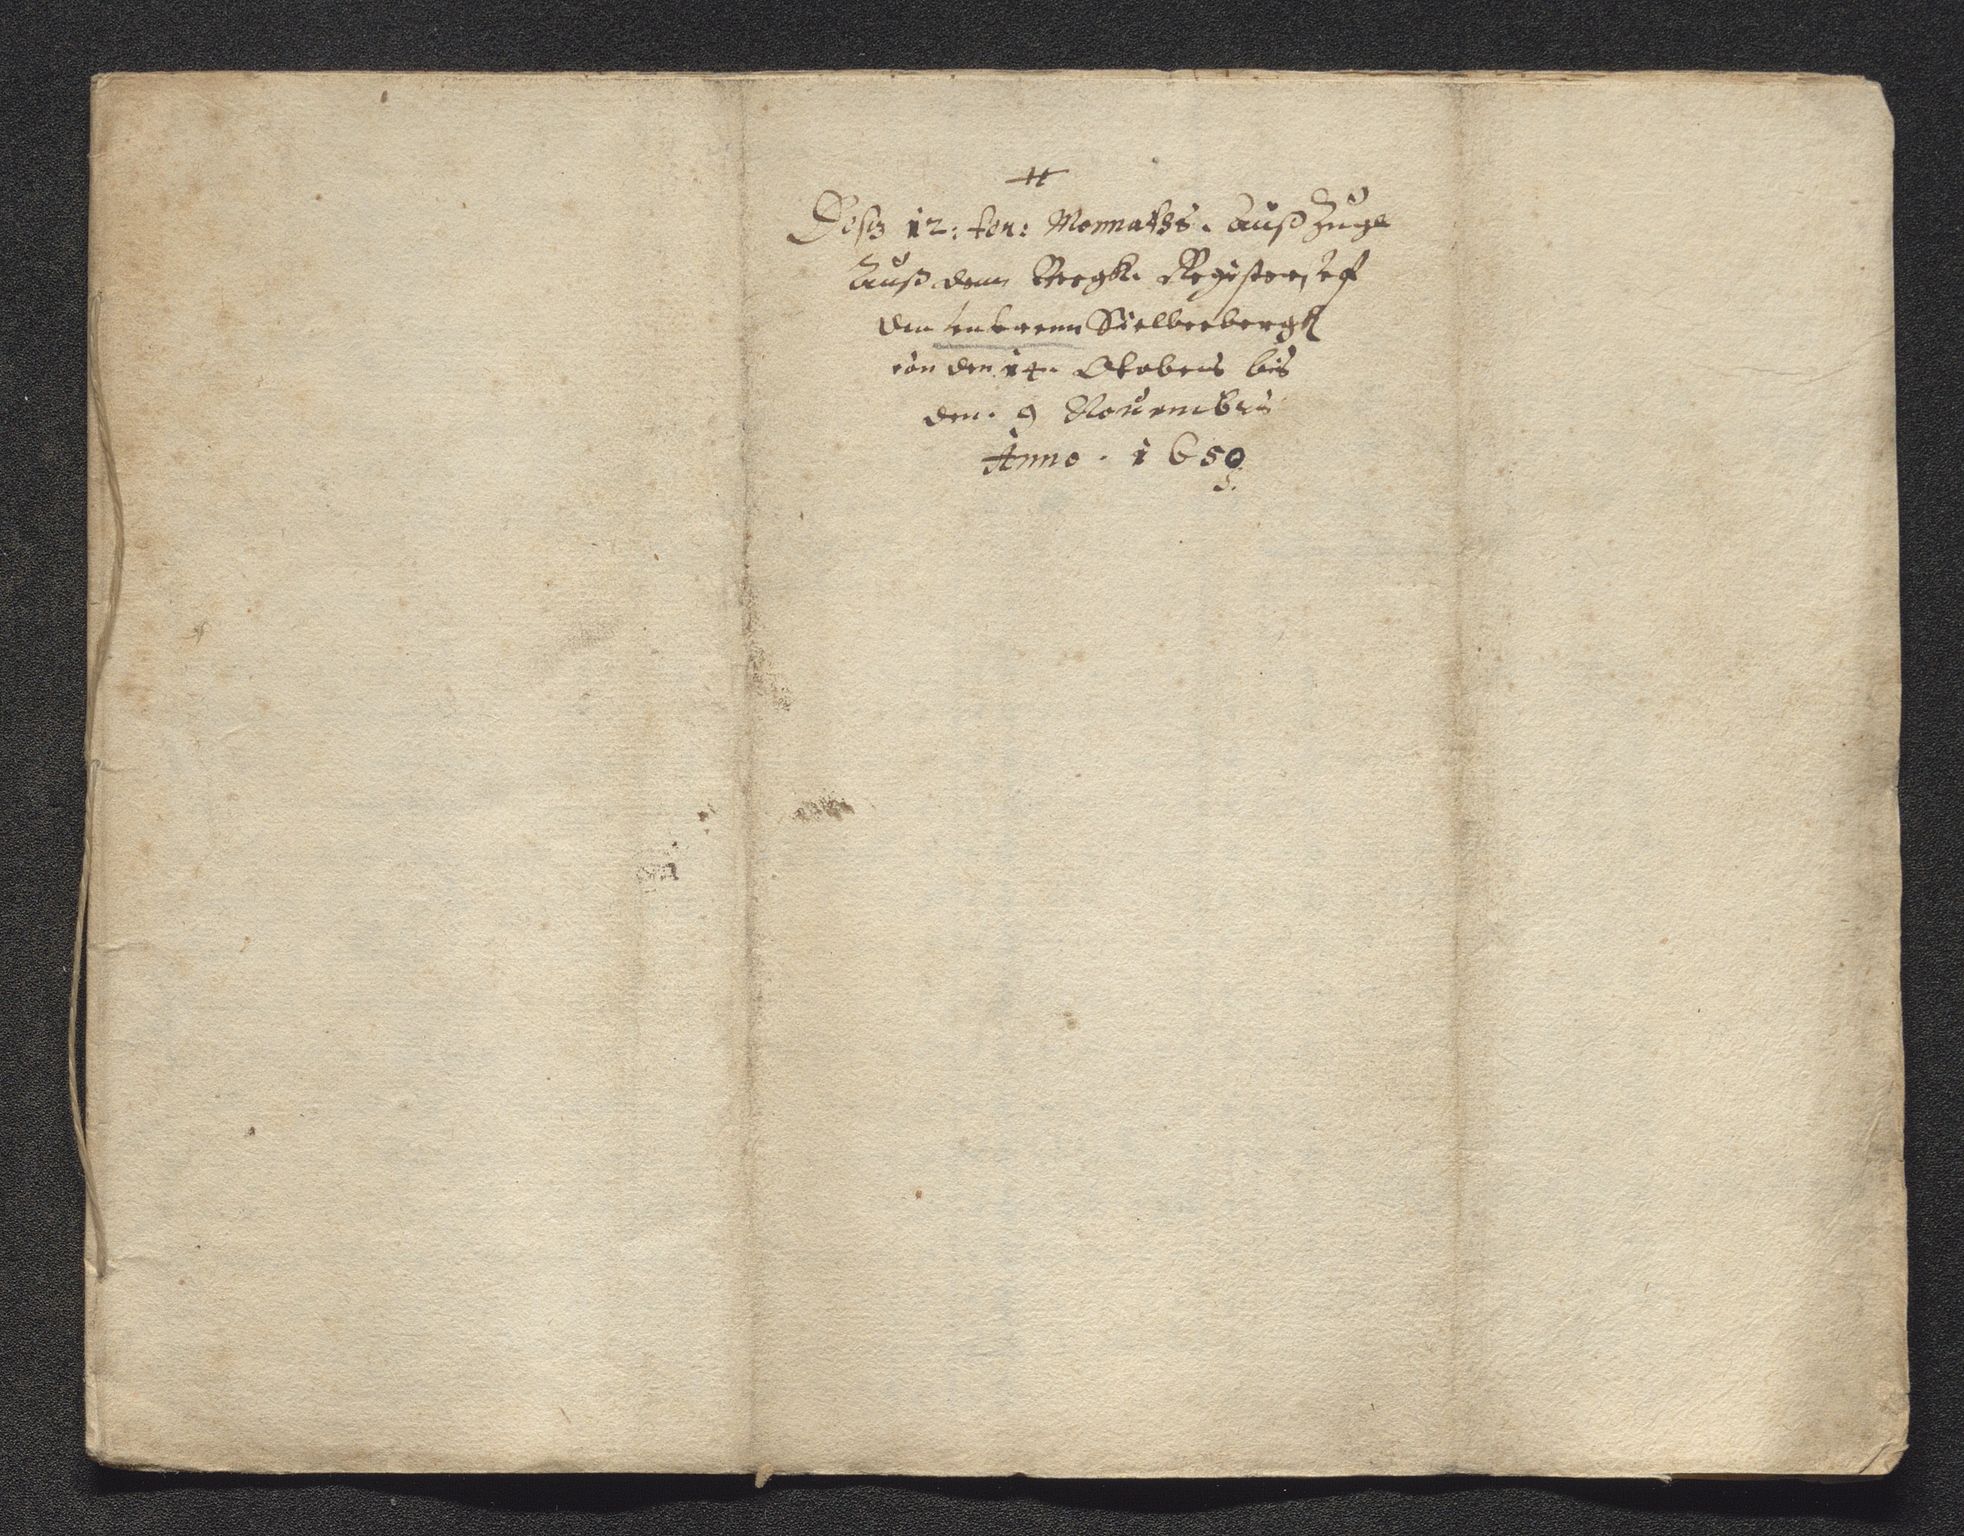 H
Deß 12: ten: Monnathß. Auß Zuge
Auß dem Bergk. Register, auf
den untrenn Sielberbergk
von den 14. Octobris bis
den. 9 Nouembris
Anno. 1650